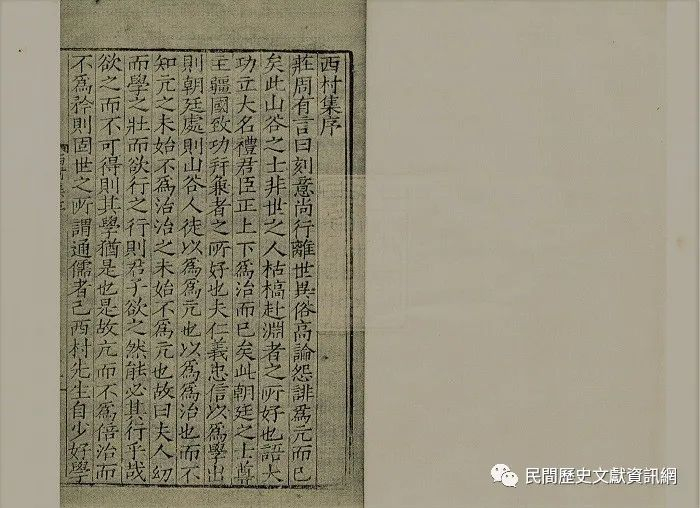 西村集序
莊周有言曰刻意尚行離世異俗高論怨誹爲亢而已
矣此山谷之士非世之人枯槁赴淵者之所好也語大
功立大名禮君臣正上下爲治而已矣此朝廷之士尊
主疆國致功幷兼者之所好也夫仁義忠信以爲學出
則朝廷處則山谷人徒以爲爲亢也以爲爲治也而不
知亢之未始不爲治治之未始不爲亢也故曰夫人幼
而學之壯而欲行之行則君子欲之然能必其行乎哉
欲之而不可得則其學猶是也是故亢而不爲倍治而
不爲矜則固世之所謂通儒者已西村先生自少好學
民間歷史文獻資訊網